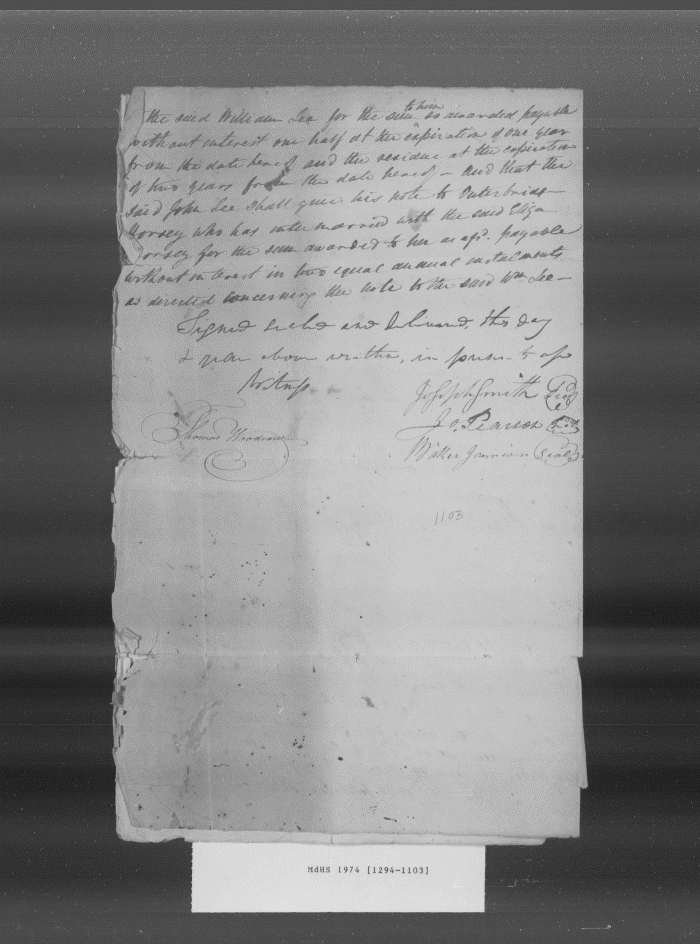 to him
the said William Lee for the sum so awarded payable
without interest one half at the expiration of one year
from the date hereof and the residue at the expiration
of two years from the date hereof — And that the
said John Lee shall give his note to Outerbridge
Dorsey who has intermarried with the said Eliza
Dorsey for the sum awarded to her as afsd. payable
without interest in two equal annual instalments
as directed concerning the note to the said Wm Lee —
Signed Sealed and Delivered, this day
& year above written, in presence of
Witness
Joseph Smith Seal
Jo. Pearson Seal
Thomas Woodrow
Walker Jamison Seal
1103
MdHS 1974 [1294-1103]